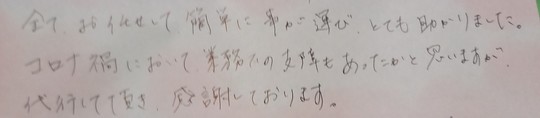 全て、お任せして簡単に事が運び、とても助かりました。
コロナ禍において、業務への支障もあったかと思いますが、
代行して頂き、感謝しております。